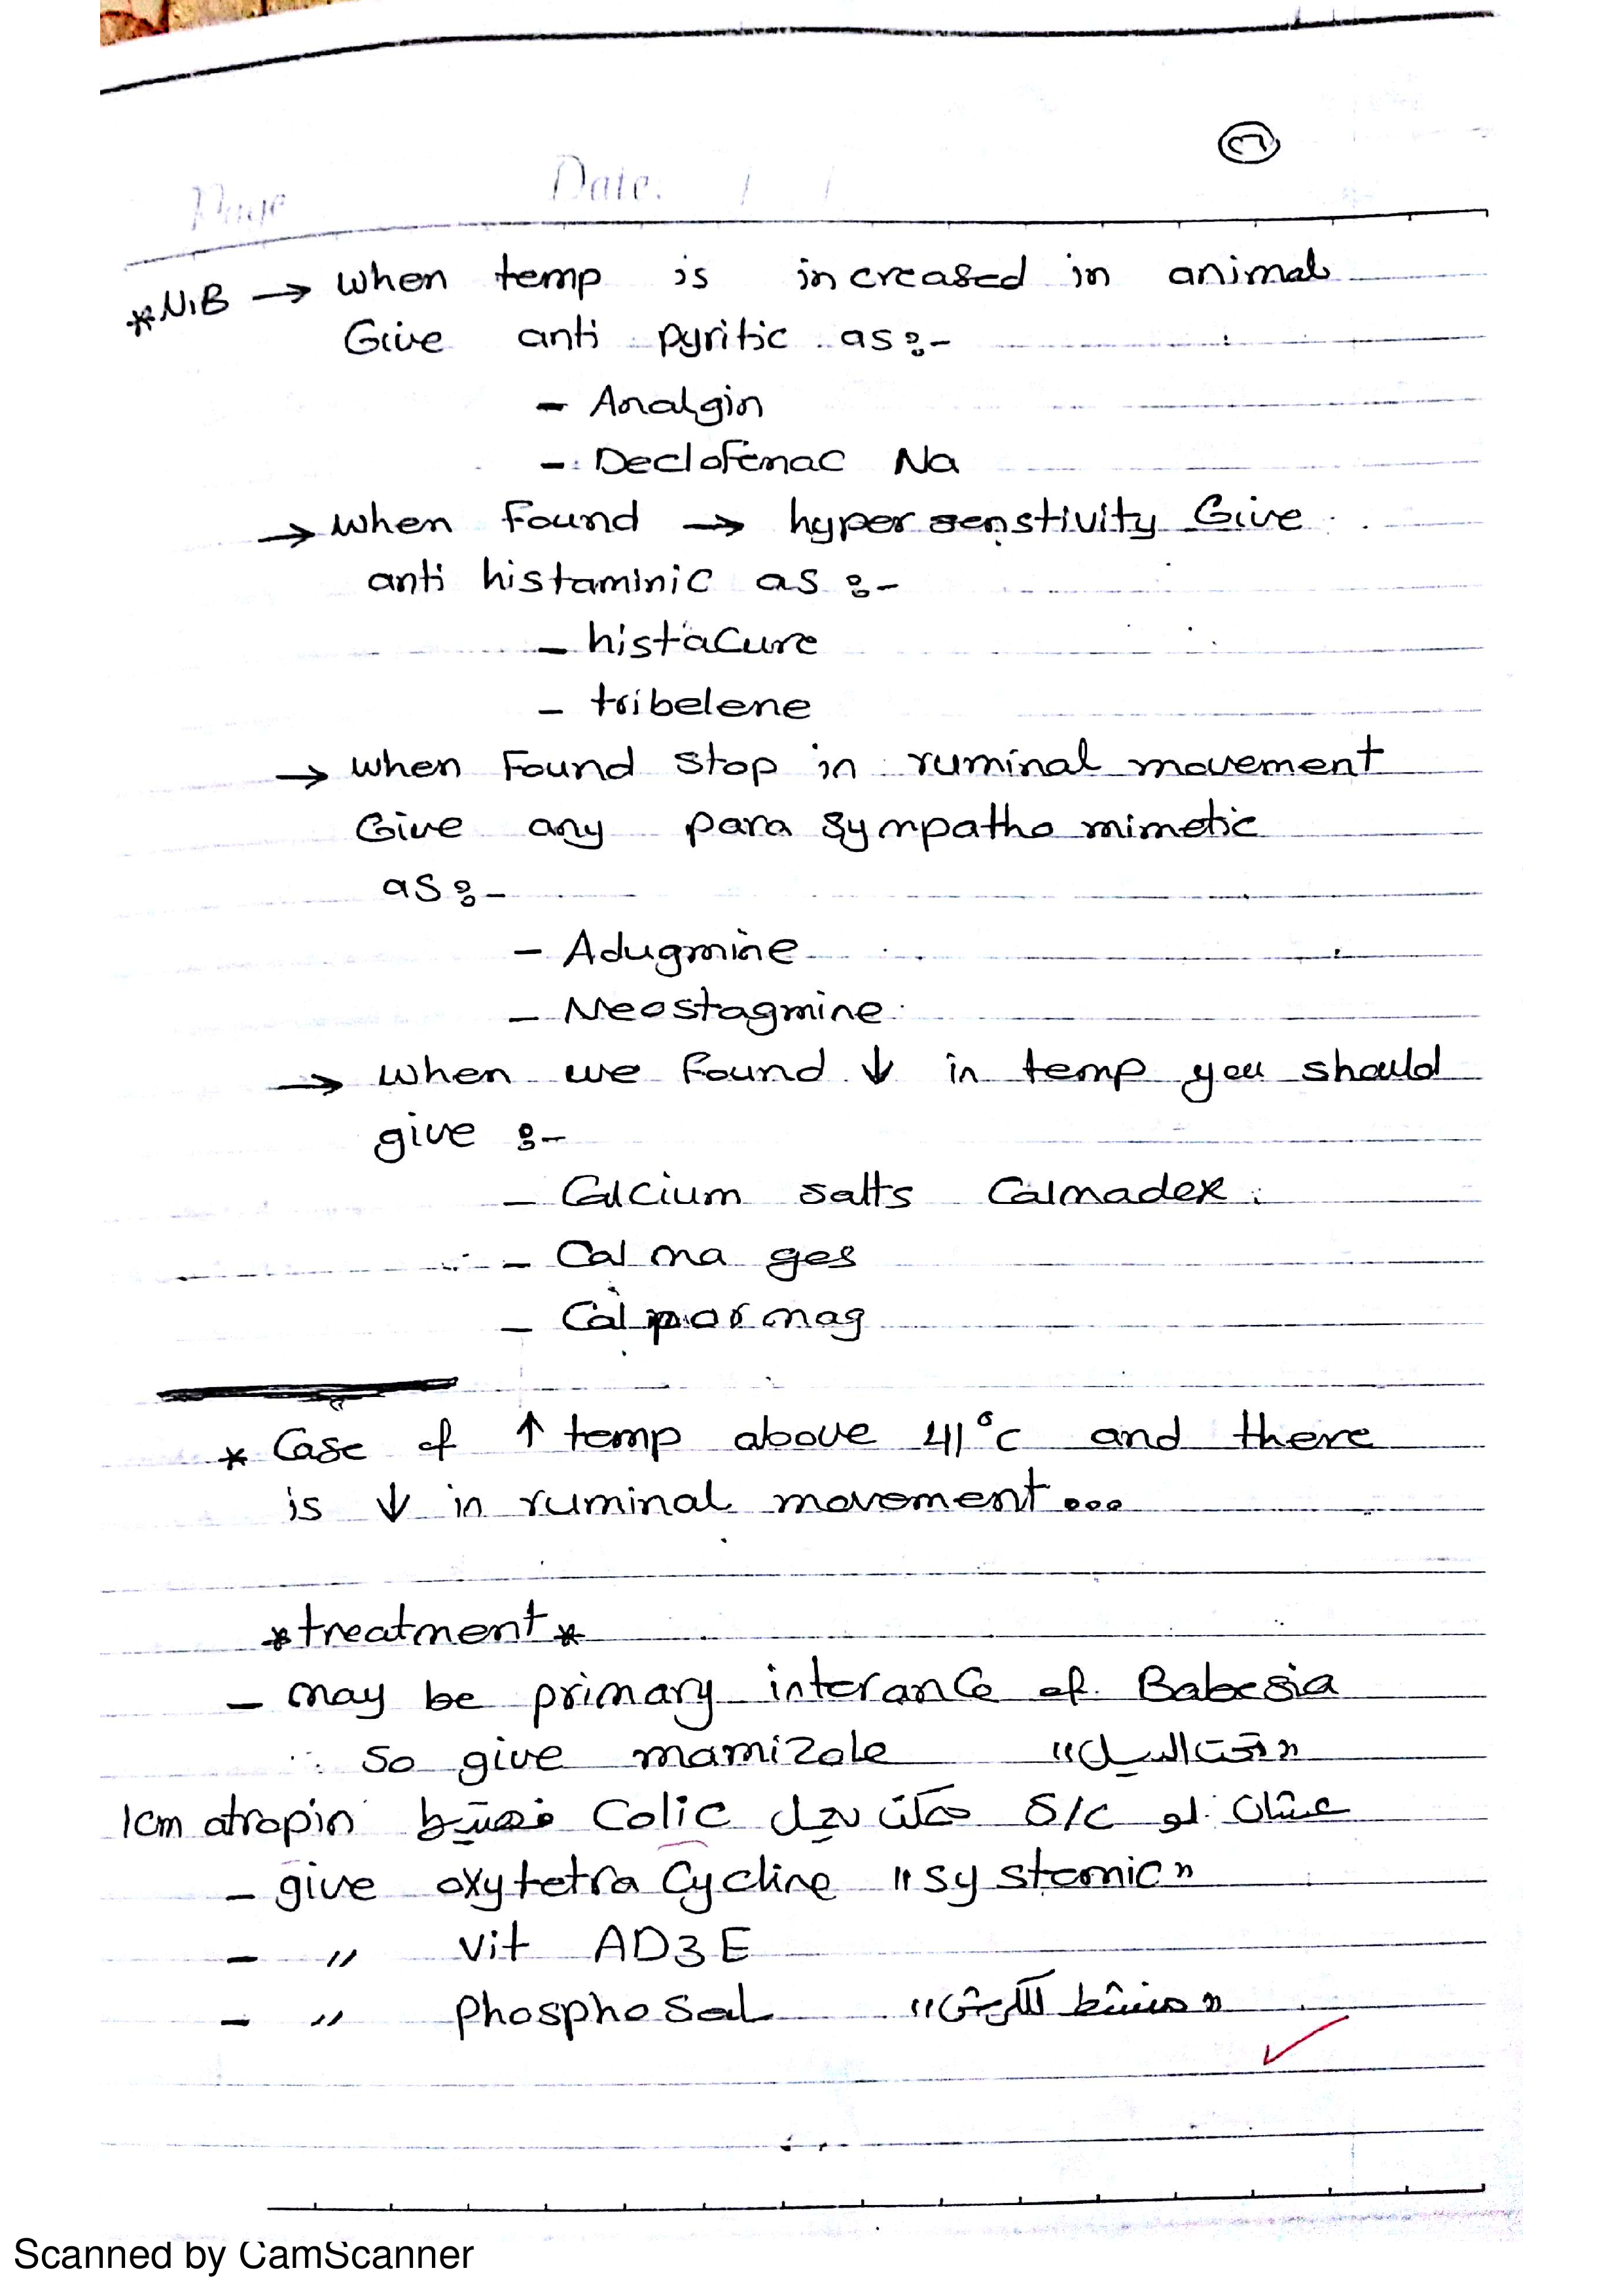 ٣
Page Date: / /
*N.B → when temp is increased in animal
Give anti pyritic as:-
- Analgin
- Declofenac Na
→ when Found → hyper senstivity Give
anti histaminic as :-
- histacure
- tribelene
→ when Found stop in ruminal movement
Give any para sympatho mimetic
as :-
- Adugmine
- Neostagmine
→ when we Found ↓ in temp you should
give :-
- Calcium salts Calmadex.
- Cal ma ges
- Cal por mag
* Case of ↑ temp above 41°c and there
is ↓ in ruminal movement...
*treatment*
- may be primary interance of Babesia
so give mamizole "تحت الديل"
عشان لو S/C ممكن يجل Colic فهنديط 1cm atropin
- give oxytetra cycline "systemic"
- " vit AD3E
- " phosphosal "منشط للكرش"
Scanned by CamScanner